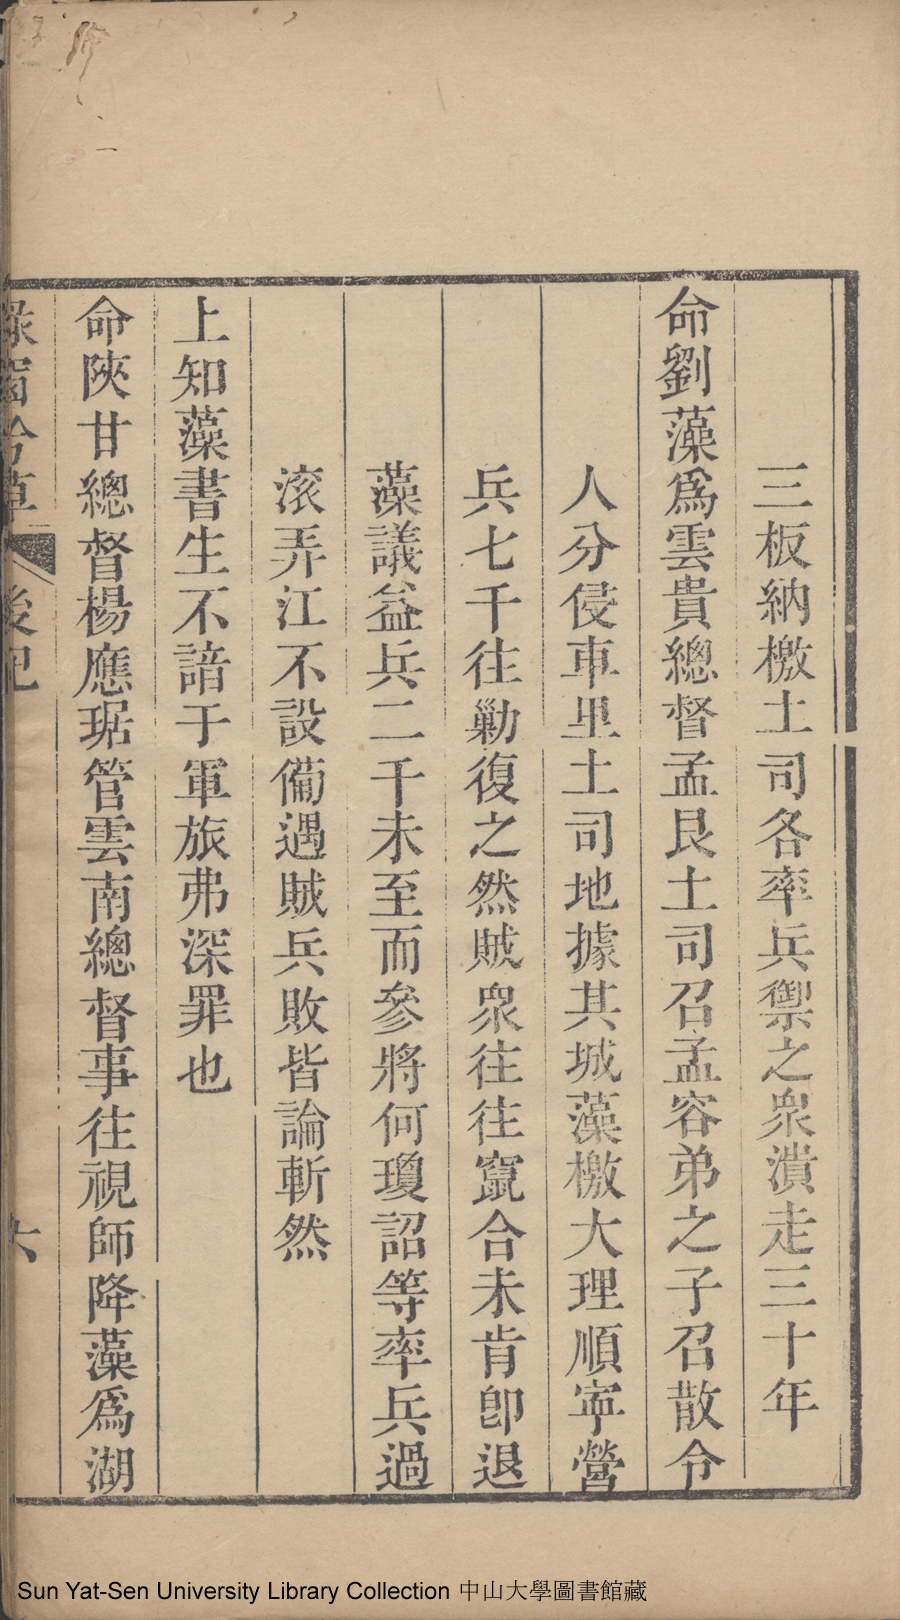 三板納檄土司各率兵禦之衆潰走三十年
命劉藻爲雲貴總督孟艮土司召孟容弟之子召散令
人分侵車里土司地據其城藻檄大理順寧營
兵七千往勦復之然賊衆往往竄合未肯卽退
藻議益兵二千未至而參將何瓊詔等率兵過
滚弄江不設備遇賊兵敗皆論斬然
上知藻書生不諳于軍旅弗深罪也
命陝甘總督楊應琚管雲南總督事往視師降藻爲湖
後記
六
Sun Yat-Sen University Library Collection 中山大學圖書館藏